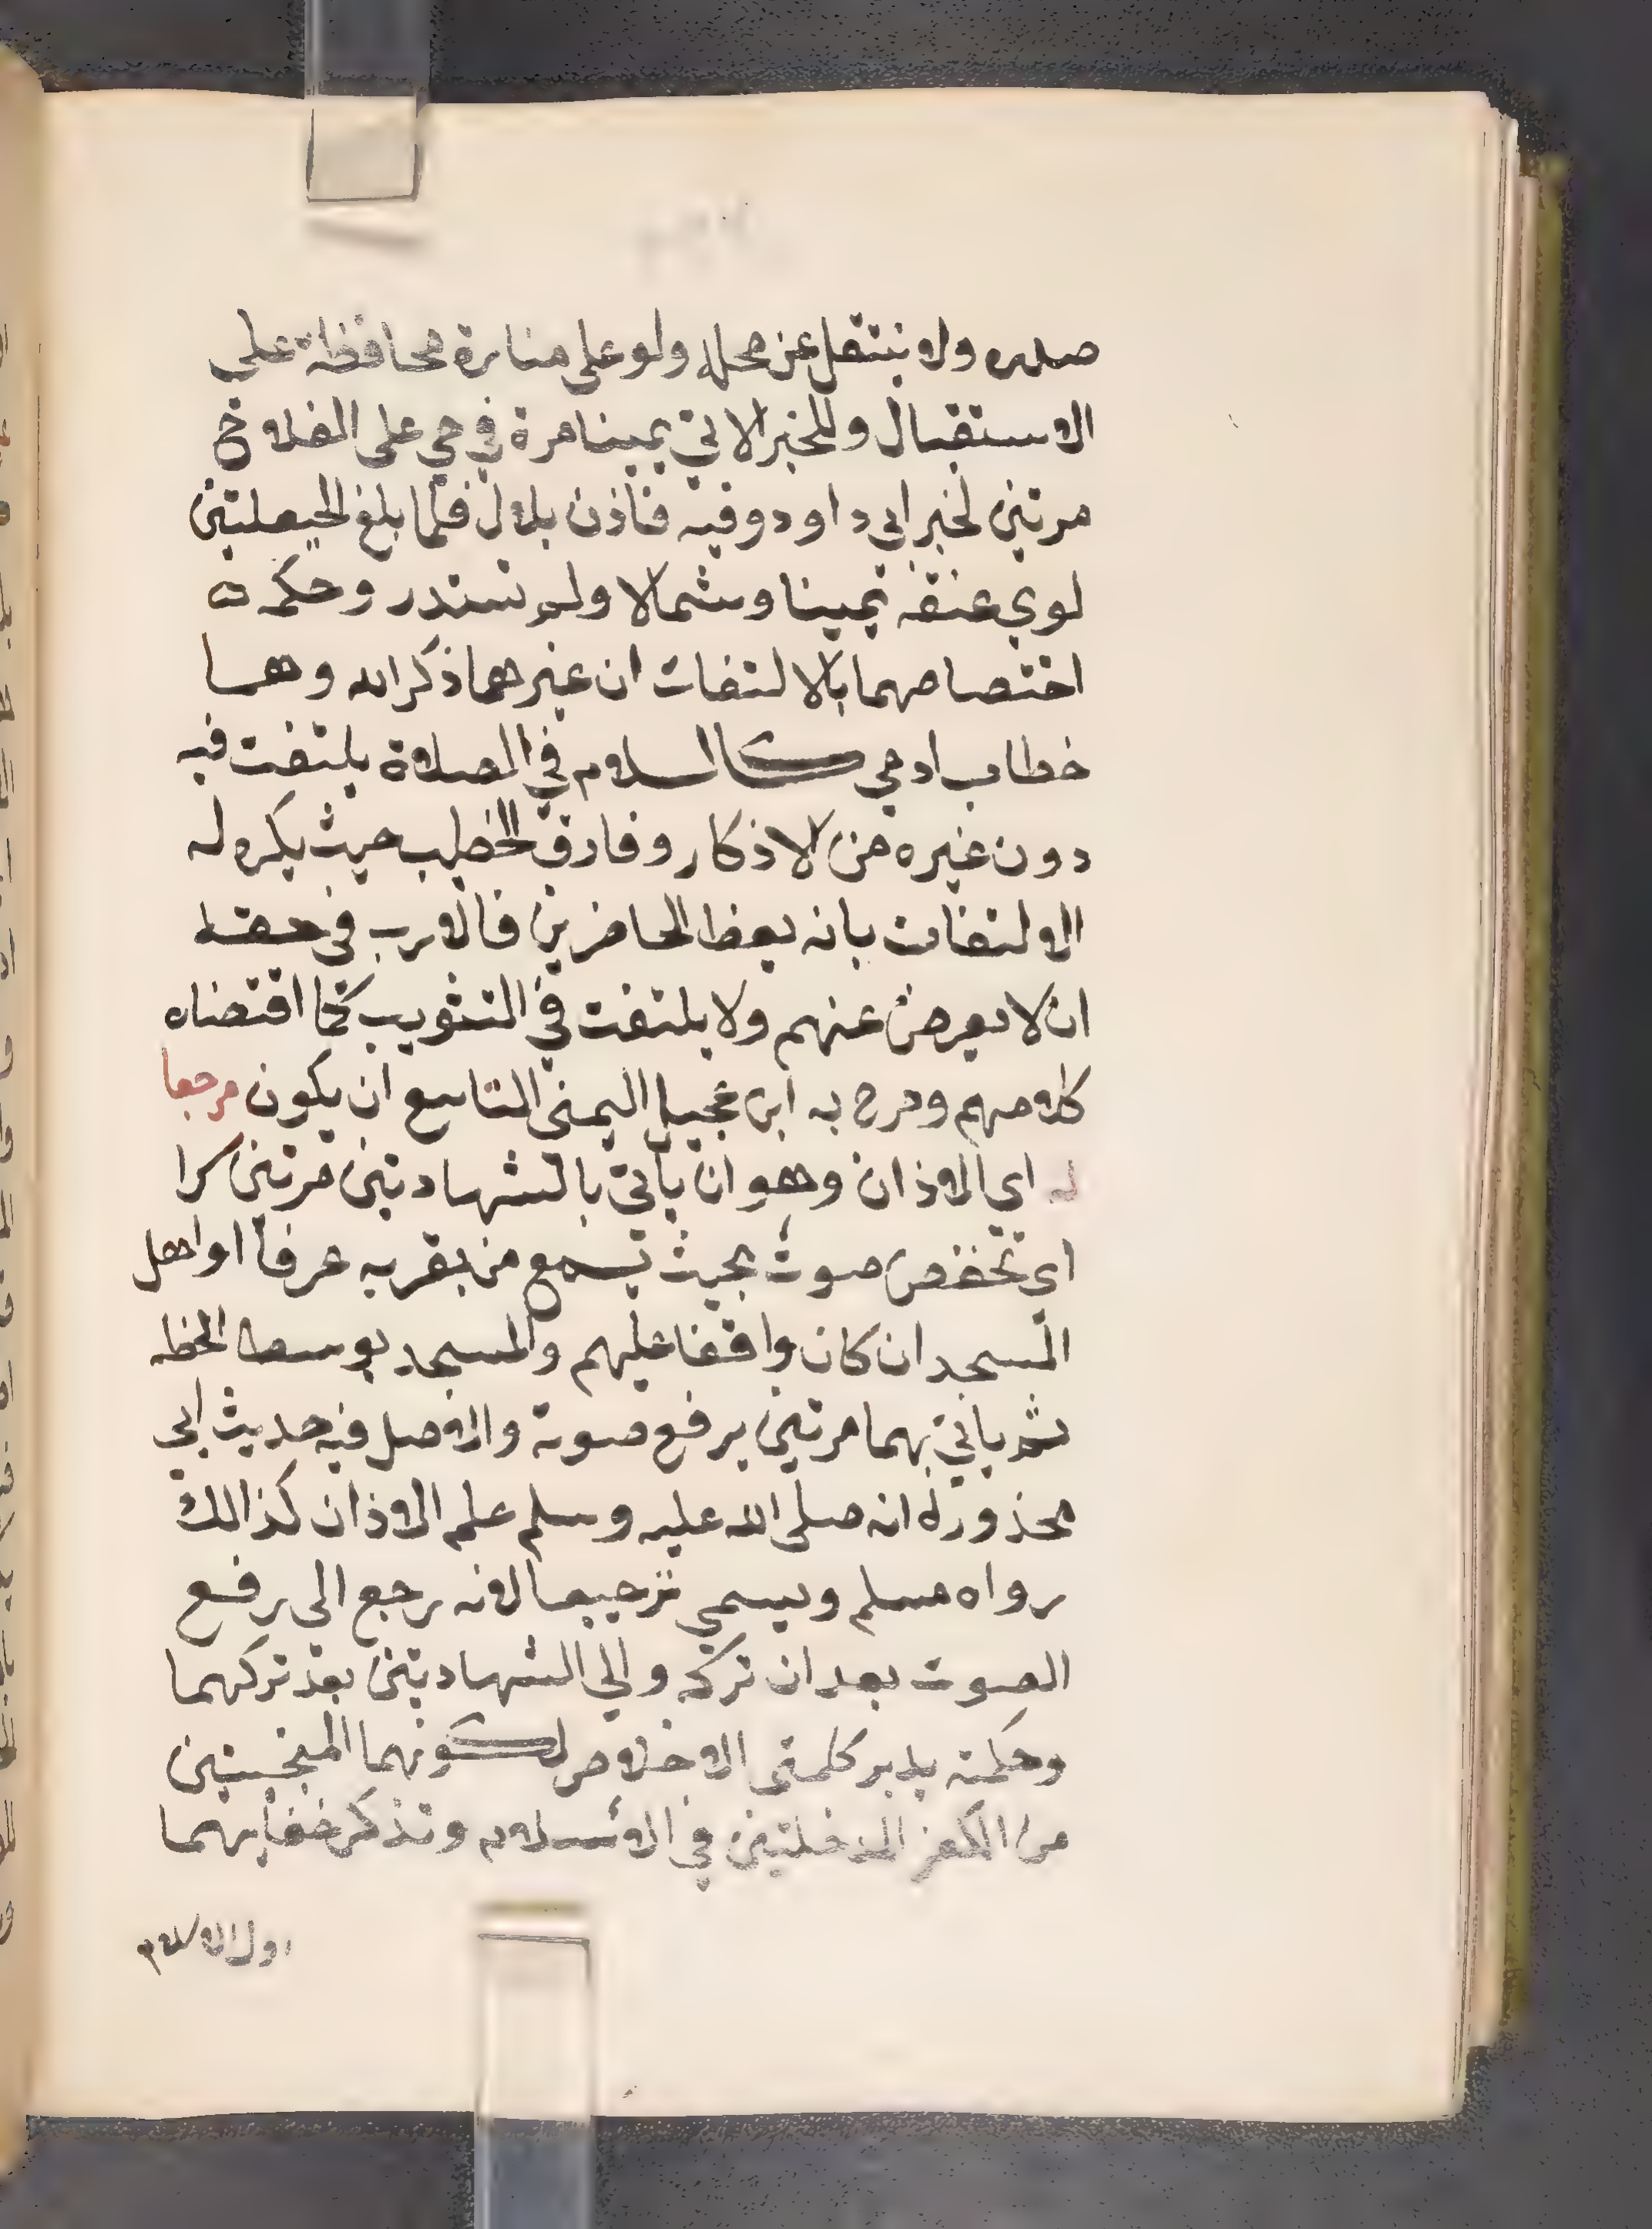 صدره ولا ينتقل عن محله ولو على منارة محافظة على
الاستقبال وللخبر الاتي يمينا مرة في حي على الفلاح
مرتين لخبر ابي داود وفيه فاذن بلال فلما بلغ الحيعلتين
لوي عنقه يمينا وشمالا ولم تستدر وحكمة
اختصاصهما بالالتفات ان غيرهما ذكر الله وهما
خطاب ادمي كالسلام في الصلاة يلتفت فيه
دون غيره من الاذكار وفارق الخطيب حيث يكره له
الالتفات بانه يعظ الحاضرين فالادب في حقه
ان لا يعرض عنهم ولا يلتفت في التثويب كما اقتضاه
كلامهم وصرح به ابن عجيل اليمني التاسع ان يكون مرجعا
له اي الاذان وهو ان ياتي بالشهادتين مرتين سرا
اي تخفض صوت بحيث تسمع من بقربه عرفا او اهل
المسجد ان كان واقفا عليهم والمسجد بوسط الخطه
ثم ياتي بهما مرتين برفع صوته والاصل فيه حديث ابي
محذورة انه صلى الله عليه وسلم علم الاذان كذالك
رواه مسلم ويسمي ترجيعا لانه رجع الى رفع
الصوت بعد ان تركه والي الشهادتين بعد تركهما
وحكمته يدبر كلمتى الاخلاص لكونهما المنجيتين
من الكفر المدخلتين في الاسلام وتذكر خفايهما
اول الاسلام